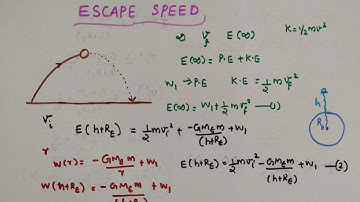 ESCAPE SPEED
∞ V_f E(∞) K=½mv²
E(∞) = P.E + K.E
W₁ → P.E K.E = ½ m v_f²
E(∞) = W₁ + ½ m v_f² — (1)
V_i
E(h+R_E) = ½ m v_i² + -GM_E m/(h+R_E) + W₁
h
R_E
r
W(r) = -GM_E m/r + W₁
E(h+R_E) = ½ m v_i² - GM_E m/(h+R_E) + W₁ — (2)
W(h+R_E) = -GM_E m/(h+R_E) + W₁